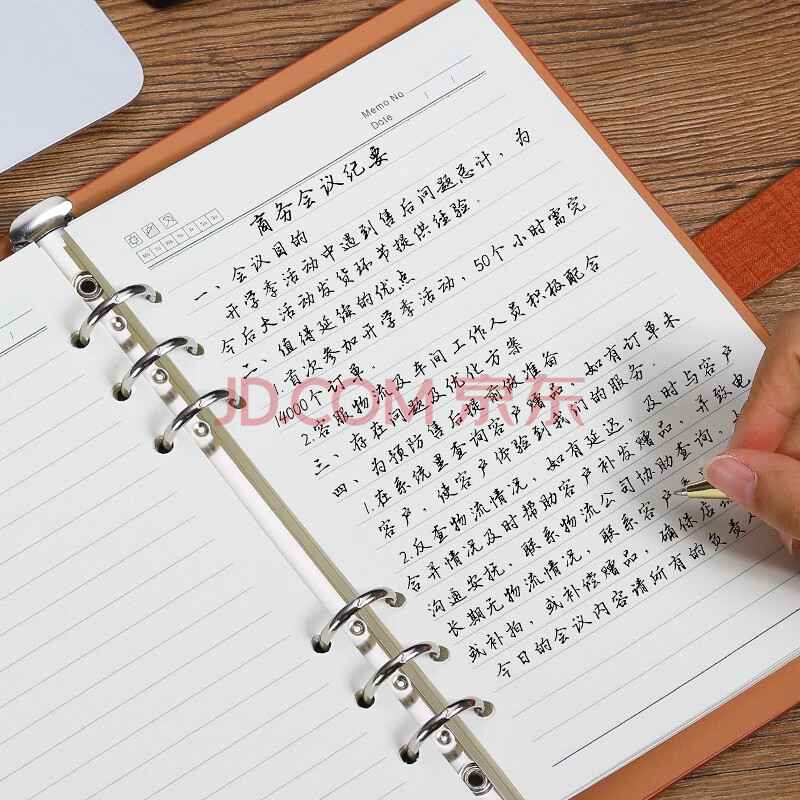 Memo No. / /
Date
Mo Tu We Th Fr Sa Su
商务会议纪要
一、会议目的
开学季活动中遇到售后问题总计，为
今后大活动发货环节提供经验。
二、值得延续的优点
1.首次参加开学季活动，50个小时需完
4000个订单。
2.客服物流及车间工作人员积极配合
三、存在问题及优化方案
四、为预防售后提前做准备
1.在系统里查询客户赠品，如有订单未
客户，使客户体验到我们的服务.
2.反查物流情况，如有延迟，及时与客户
合并情况及时帮助客户补发赠品，并致电
沟通安抚，联系物流公司协助查询，
长期无物流情况，联系客户
或补拍，或补偿赠品，确保店
今日的会议内容请所有的负责人
JD.COM 京东